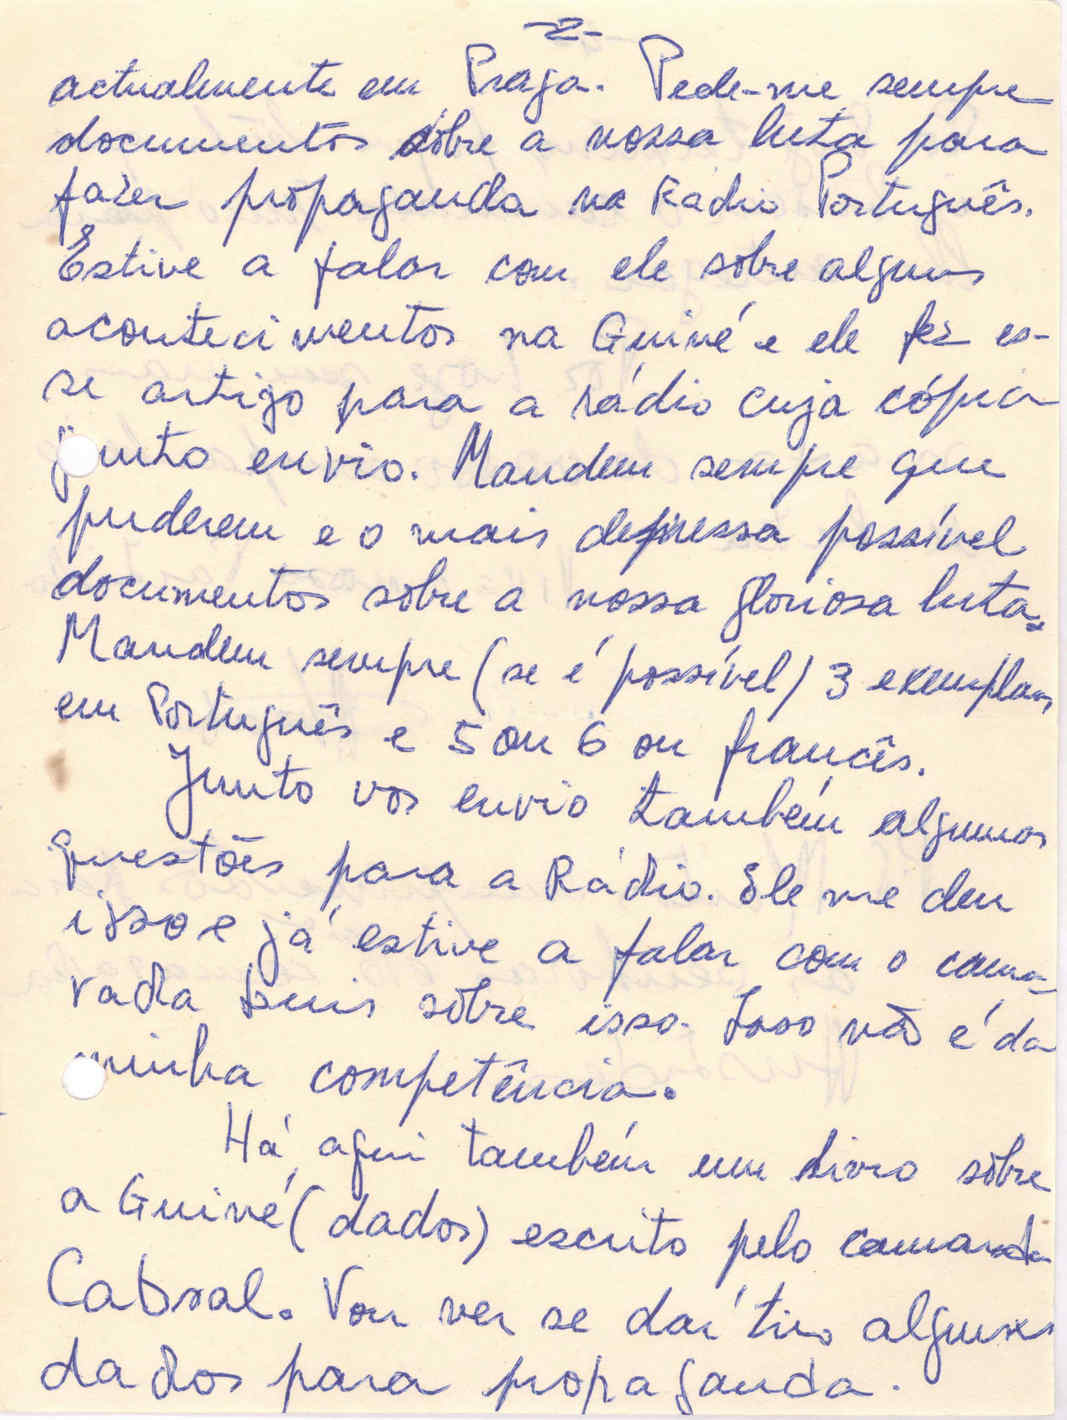 -2-
actualmente em Praga. Pede-me sempre
documentos sôbre a nossa luta para
fazer propaganda na Rádio Português.
Estive a falar com ele sobre alguns
acontecimentos na Guiné e ele fez es-
se artigo para a rádio cuja cópia
junto envio. Mandem sempre que
puderem e o mais depressa possível
documentos sôbre a nossa gloriosa luta.
Mandem sempre (se é possível) 3 exemplares
em Português e 5 ou 6 ou francês.
Junto vos envio também algumas
questões para a Rádio. Ele me deu
isso e já estive a falar com o cama-
rada Luis sôbre isso. Isso não é da
minha competência.
Há aqui também um livro sôbre
a Guiné (dados) escrito pelo camarada
Cabral. Vou ver se daí tiro alguns
dados para propaganda.